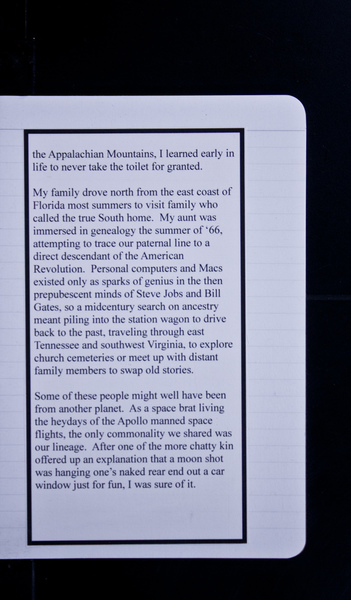 the Appalachian Mountains, I learned early in
life to never take the toilet for granted.
My family drove north from the east coast of
Florida most summers to visit family who
called the true South home.  My aunt was
immersed in genealogy the summer of ‘66,
attempting to trace our paternal line to a
direct descendant of the American
Revolution.  Personal computers and Macs
existed only as sparks of genius in the then
prepubescent minds of Steve Jobs and Bill
Gates, so a midcentury search on ancestry
meant piling into the station wagon to drive
back to the past, traveling through east
Tennessee and southwest Virginia, to explore
church cemeteries or meet up with distant
family members to swap old stories.
Some of these people might well have been
from another planet.  As a space brat living
the heydays of the Apollo manned space
flights, the only commonality we shared was
our lineage.  After one of the more chatty kin
offered up an explanation that a moon shot
was hanging one’s naked rear end out a car
window just for fun, I was sure of it.